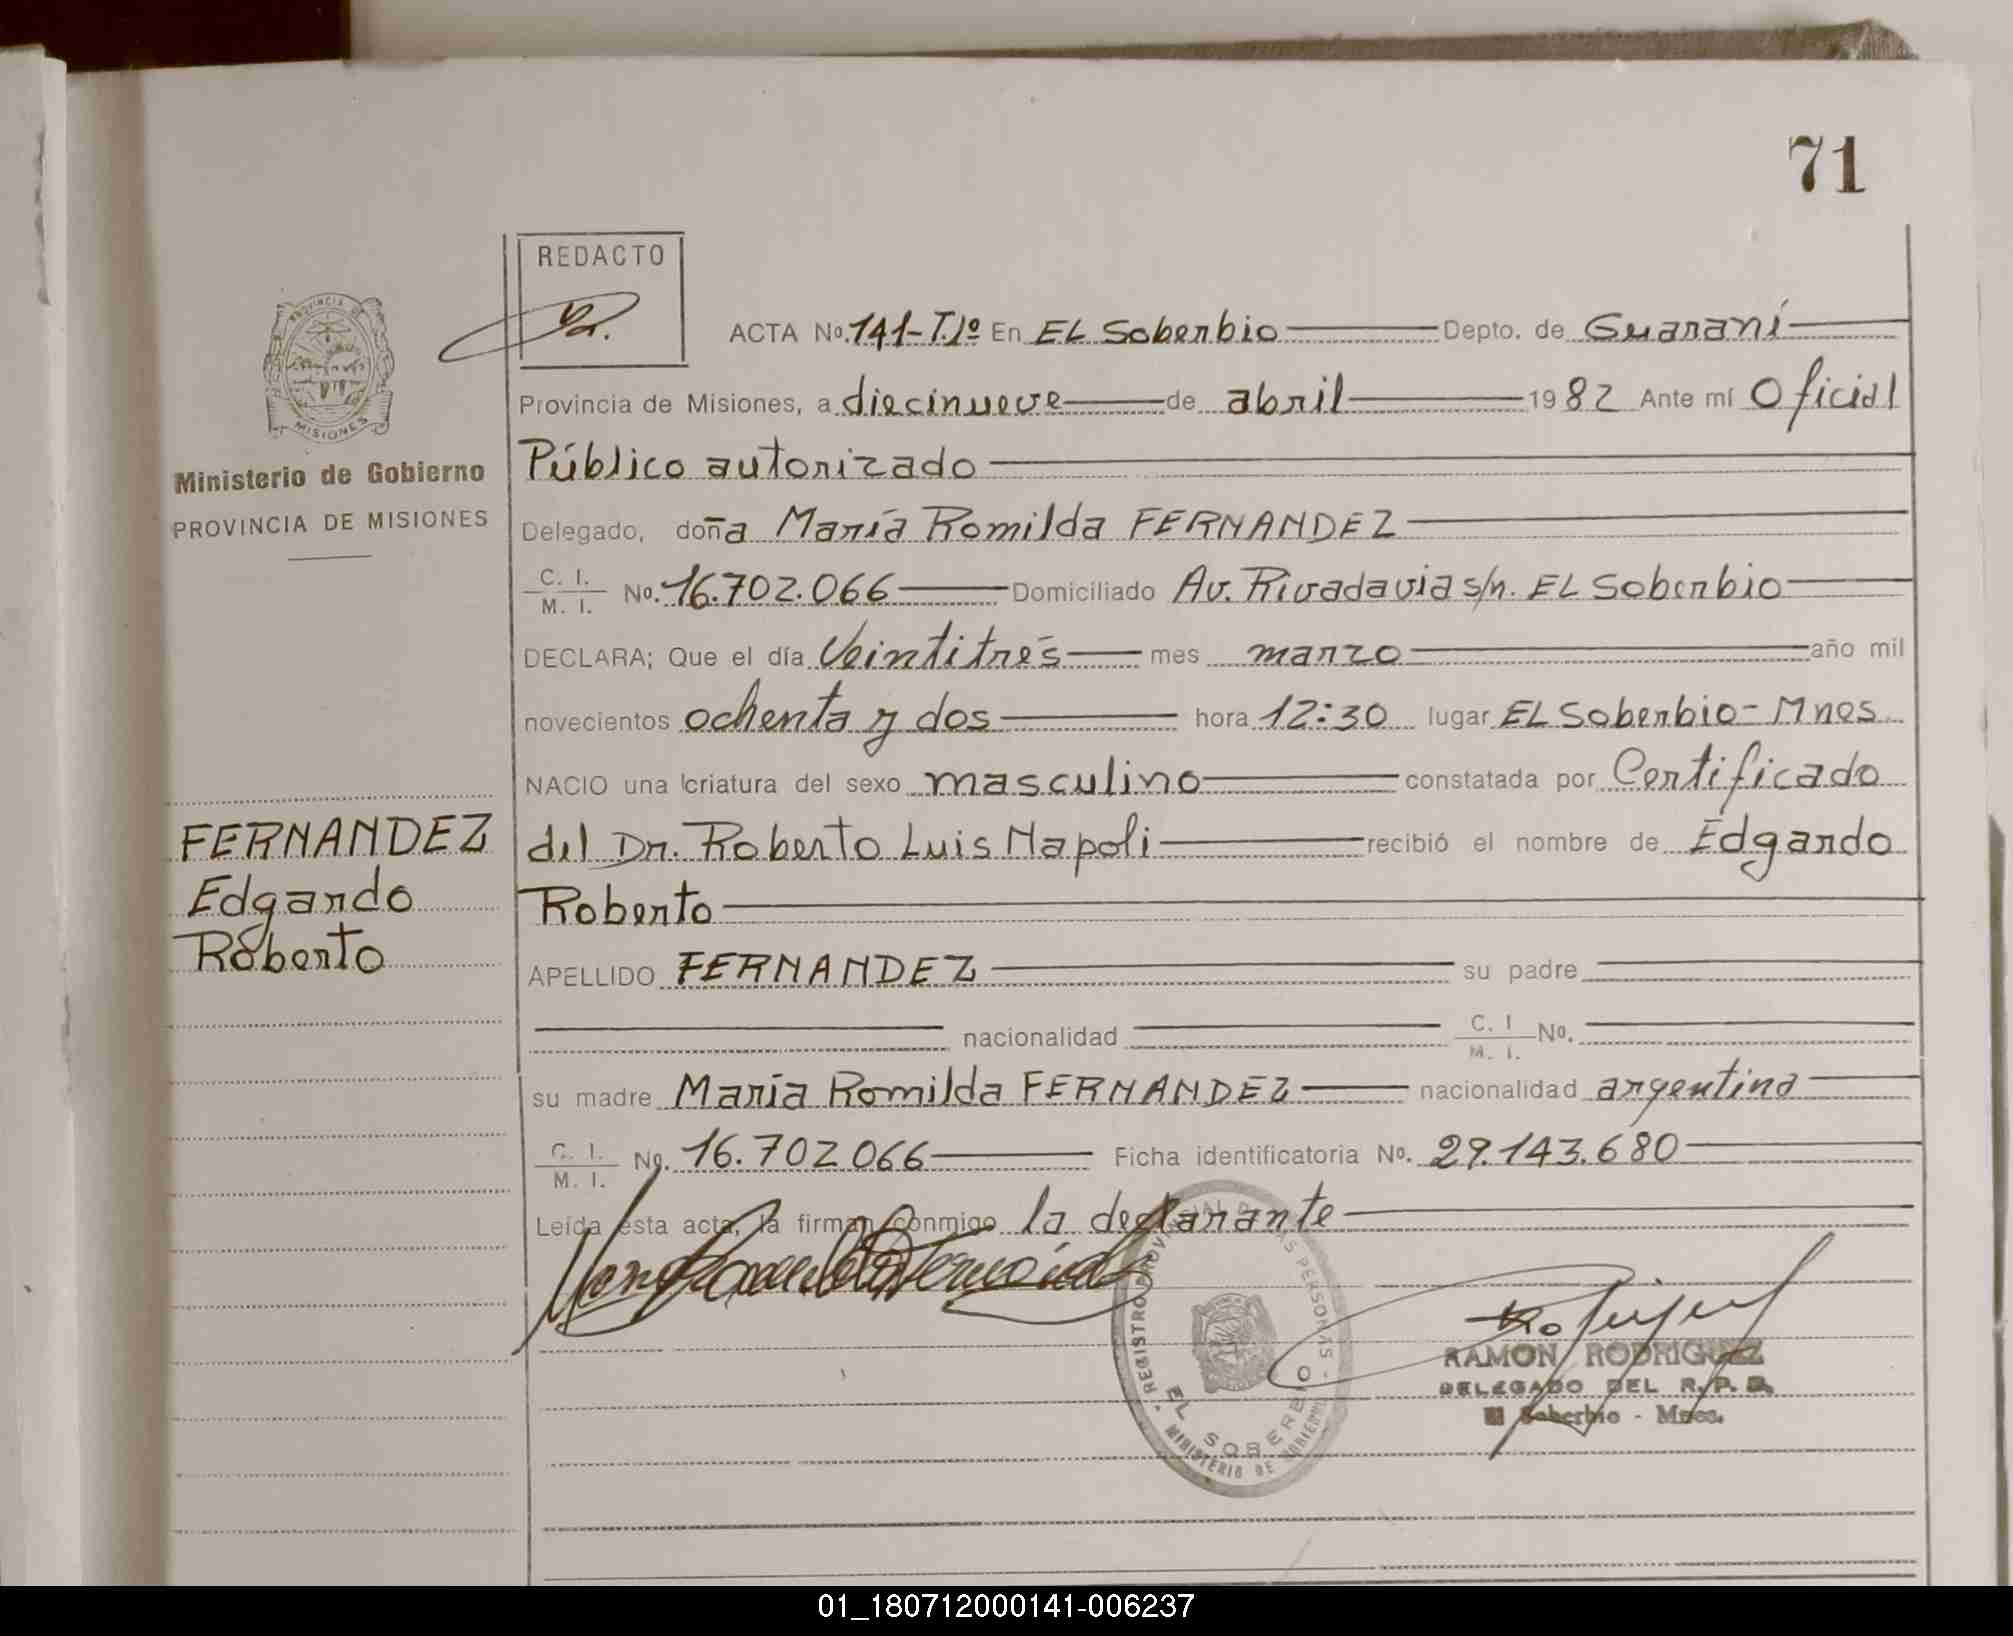 71
REDACTO
ACTA No. 141-T.1º En EL Soberbio Depto. de Guaraní
Provincia de Misiones, a diecinueve de abril 1982 Ante mí Oficial
Público autorizado
Delegado, doña María Romilda FERNANDEZ
C. I. / M. I. No. 16.702.066 Domiciliado Av. Rivadavia s/n. EL Soberbio
DECLARA; Que el día Veintitrés mes marzo año mil
novecientos ochenta y dos hora 12:30 lugar EL Soberbio - Mnes
NACIO una criatura del sexo masculino constatada por Certificado
del Dr. Roberto Luis Napoli recibió el nombre de Edgardo
Roberto
APELLIDO FERNANDEZ su padre
nacionalidad C. I / M. I. No.
su madre María Romilda FERNANDEZ nacionalidad argentina
C. I. / M. I. No. 16.702066 Ficha identificatoria No. 29.143.680
Leída esta acta, la firman conmigo la declarante
PROVINCIA DE
MISIONES
Ministerio de Gobierno
PROVINCIA DE MISIONES
FERNANDEZ
Edgardo
Roberto
REGISTRO PROVINCIAL DE LAS PERSONAS
EL SOBERBIO
MINISTERIO DE GOBIERNO
RAMON RODRIGUEZ
DELEGADO DEL R. P. P.
El Soberbio - Mnes.
01_180712000141-006237